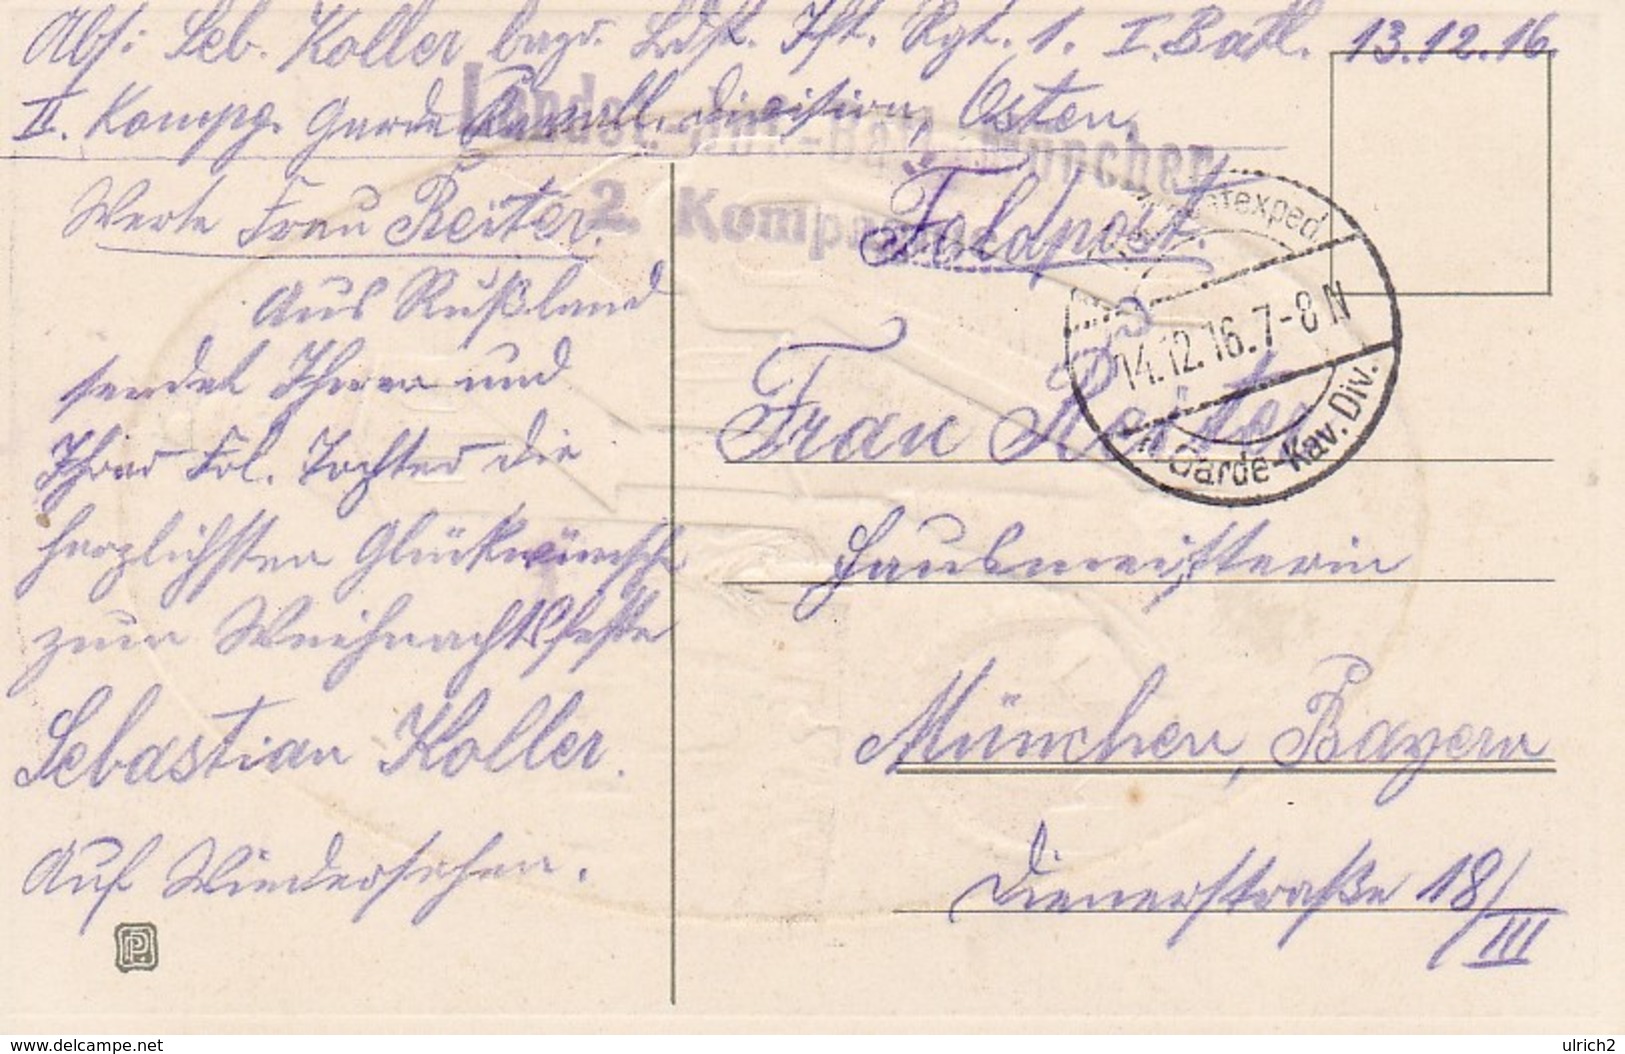 Abs: Seb. Koller bayr. Ldst. Ift. Rgt. 1. I. Batl. 13.12.16.
II. Kompg. Garde Kavall. Division, Osten.
Landst.-Inf.-Batl. München
2. Kompagnie
Feldpost.
Werte Frau Reiter.
Aus Rußland
sendet Ihnen und
Ihrer Frl. Tochter die
herzlichsten Glückwünsche
zum Weihnachtsfeste
Sebastian Koller.
Auf Wiedersehen.
P.
14.12.16.7-8N
Garde-Kav. Div.
Frau Reiter
Hausmeisterin
München, Bayern
Dienerstraße 18/
III
delcampe.net
ulrich2